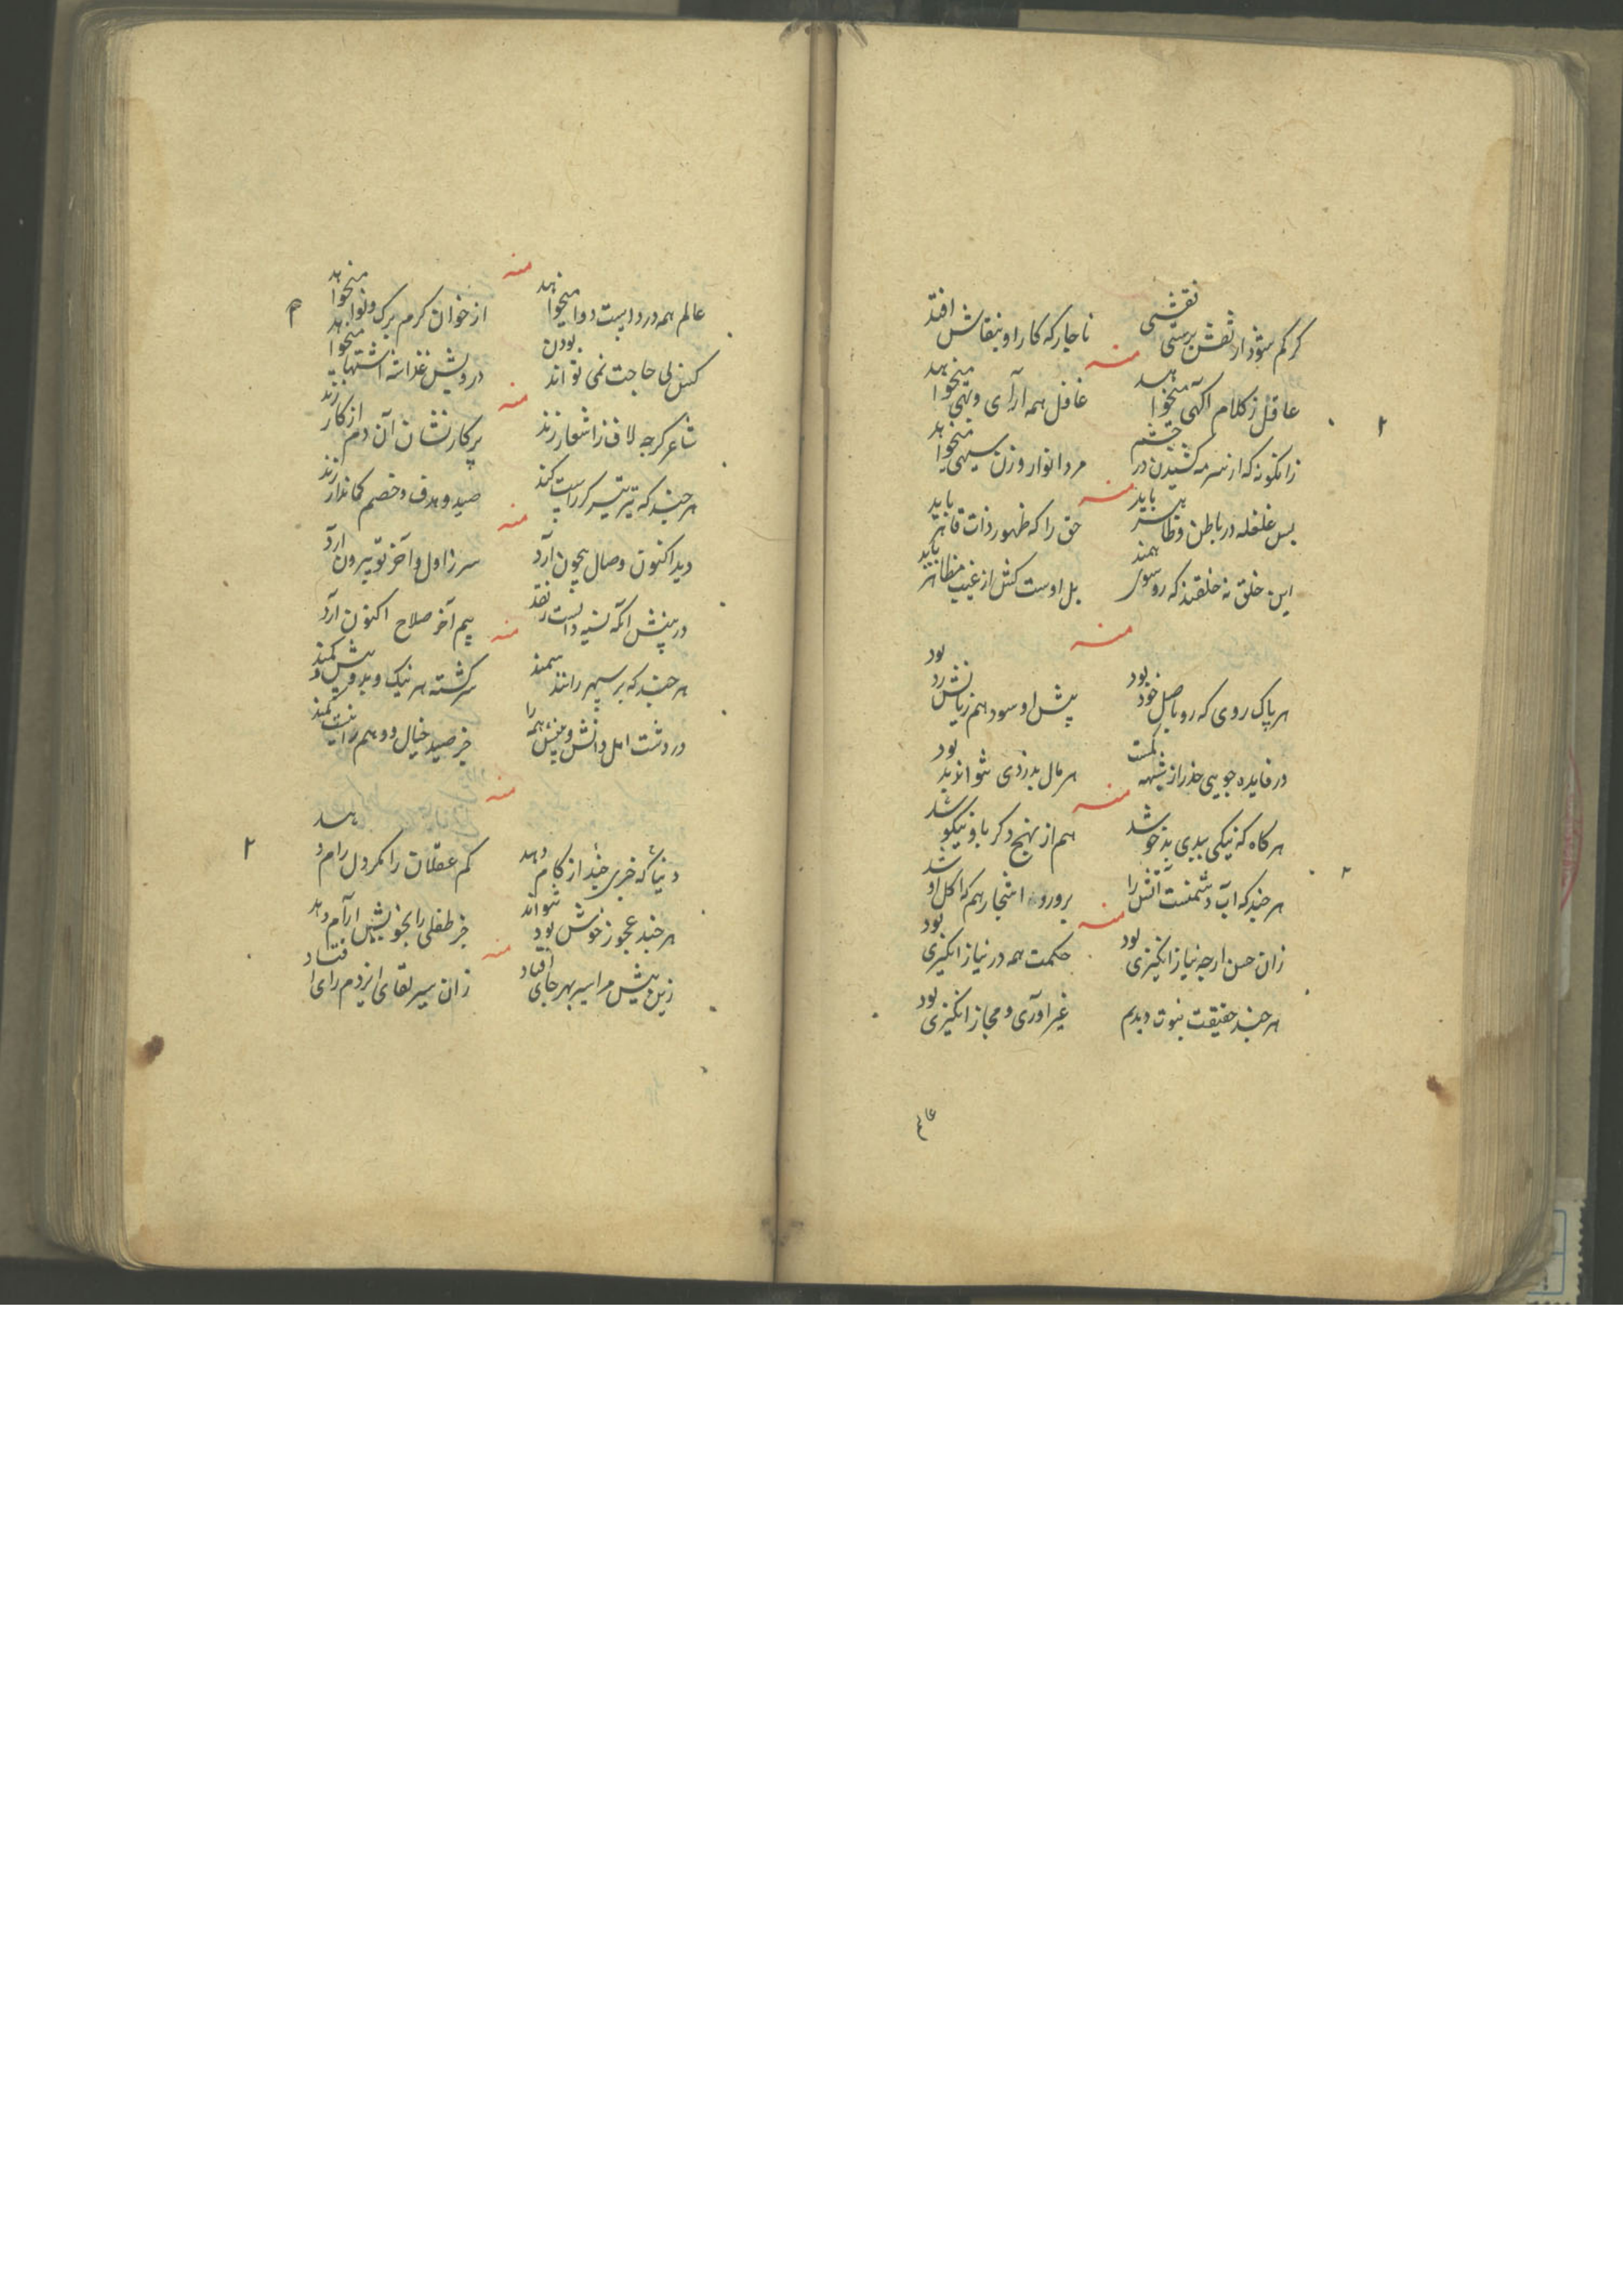 کر کم شود از نقش پرستی نقشی
ناچار که کار او بنقاش افتد
منه
عاقل ز کلام آکهی میخواهد
غافل همه آرای و تهی میخواهد
زانکونه که از سرمه کشیدن در چشم
مرد انوار و زن سیهی میخواهد
منه
بس غلغله در باطن و ظاهر باید
حق را که ظهور ذات قاهر باید
این خلق نه خلقند که روسوی همند
بل اوست کش از غیب مظاهر باید
منه
هر پاک روی که رو باصل خود بود
پیش او سود هم زیانش رد بود
در فایده جویی حذر از شبهه
هر مال بدزدی نتواند بود
منه
هر کاه که نیکی ببدی بدخو شد
هم از نهج دکر با و نیکو شد
هر چند که آب دشمنست آتش را
پرورد اشجار هم که اکل او شد
منه
زان حسن ارچه نیاز انکیزی بود
حکمت همه در نیاز انکیزی بود
هر چند حقیقت بنبوت دیدم
غیر آوری و مجاز انکیزی بود
عالم
منه
عالم همه درد است دوا میخواهد
از خوان کرم برک و نوا میخواهد
کس بی حاجت نمی تواند بودن
درویش غذا شه اشتها میخواهد
منه
شاعر کرچه لاف ز اشعار زند
پر کار نشان آن دم از کار زند
هر چند که تیر تیرکر راست کند
صید و هدف و خصم کماندار زند
منه
دید اکنون وصال بیچون آرد
سر ز اول و آخر تو بیرون آرد
در بینش آنکه نسیه دانست ز نقد
بیم آخر صلاح اکنون آرد
منه
هر چند که بر سپهر رانند سمند
سرکشته هر نیک و بد و بیش و کمند
در دشت امل دانش و بینش همه را
جز صید خیال و وهم را نیست کمند
منه
دنیا که خری چند از کام دهد
کم عقلان را کمر دل رام دهد
هر چند عجوز خوش بود نتواند
جز طفلی را بخویش آرام دهد
منه
زین پیش مرا سیر بهر جای افتاد
زان سیر لقای ایزدم رای افتاد